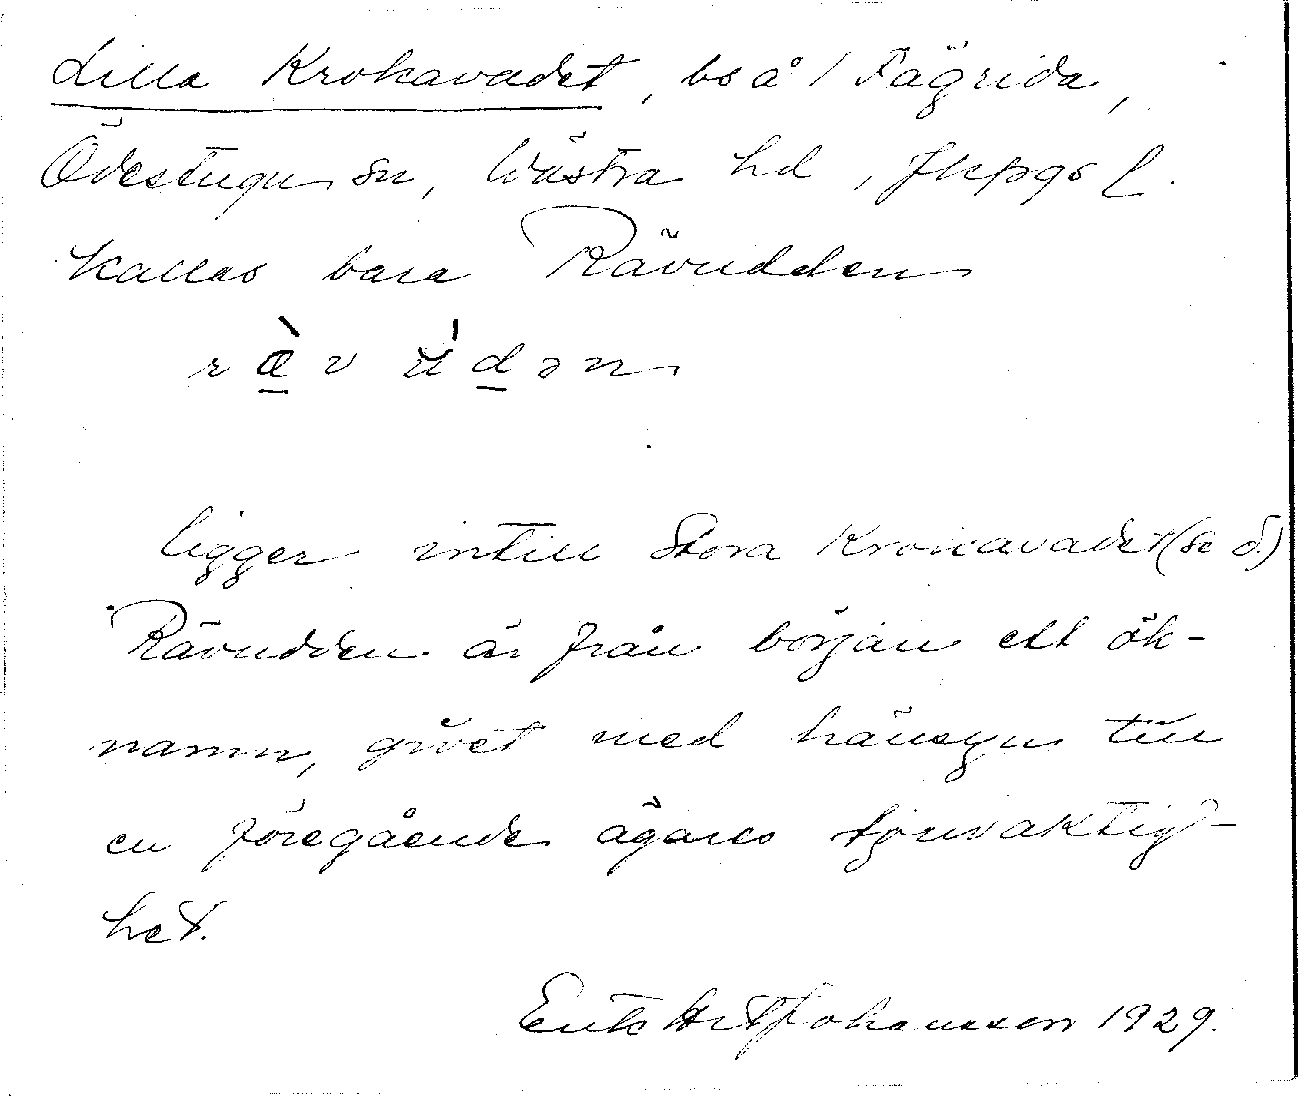 Lilla Krokavadet, bs å 1 Fägrida,
Ödestugu sn, Västra hd, Jkpgs l.
Kallas bara Rävudden
r æ̀ v ú d ə n
ligger intill Stora Krokavadet (se d.)
Rävudden är från början ett ök-
namn, givet med hänsyn till
en föregående ägares tjuvaktig-
het.
Johansson 1929.